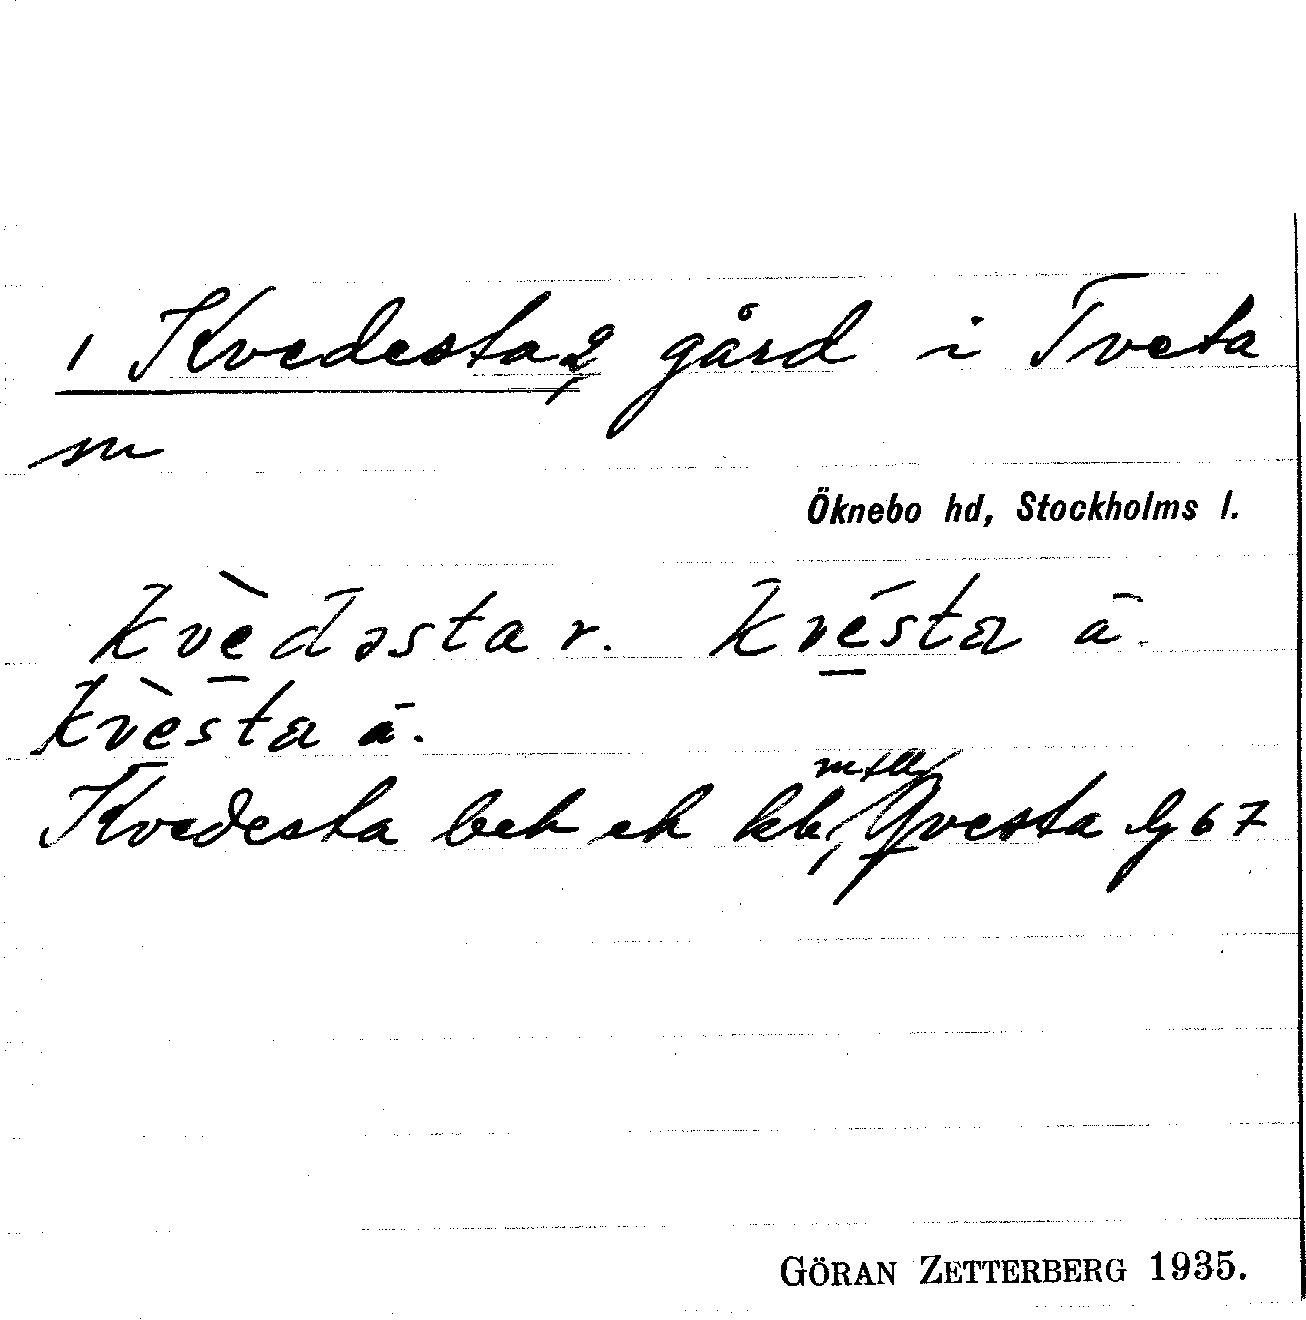 1 Kvedesta, 2 gård i Tveta
sn
Öknebo hd, Stockholms l.
kvèdəsta r. kvésta ä.
kvèsta ä.
mtll
Kvedesta bek ek kb, Qvesta lg 67
GÖRAN ZETTERBERG 1935.